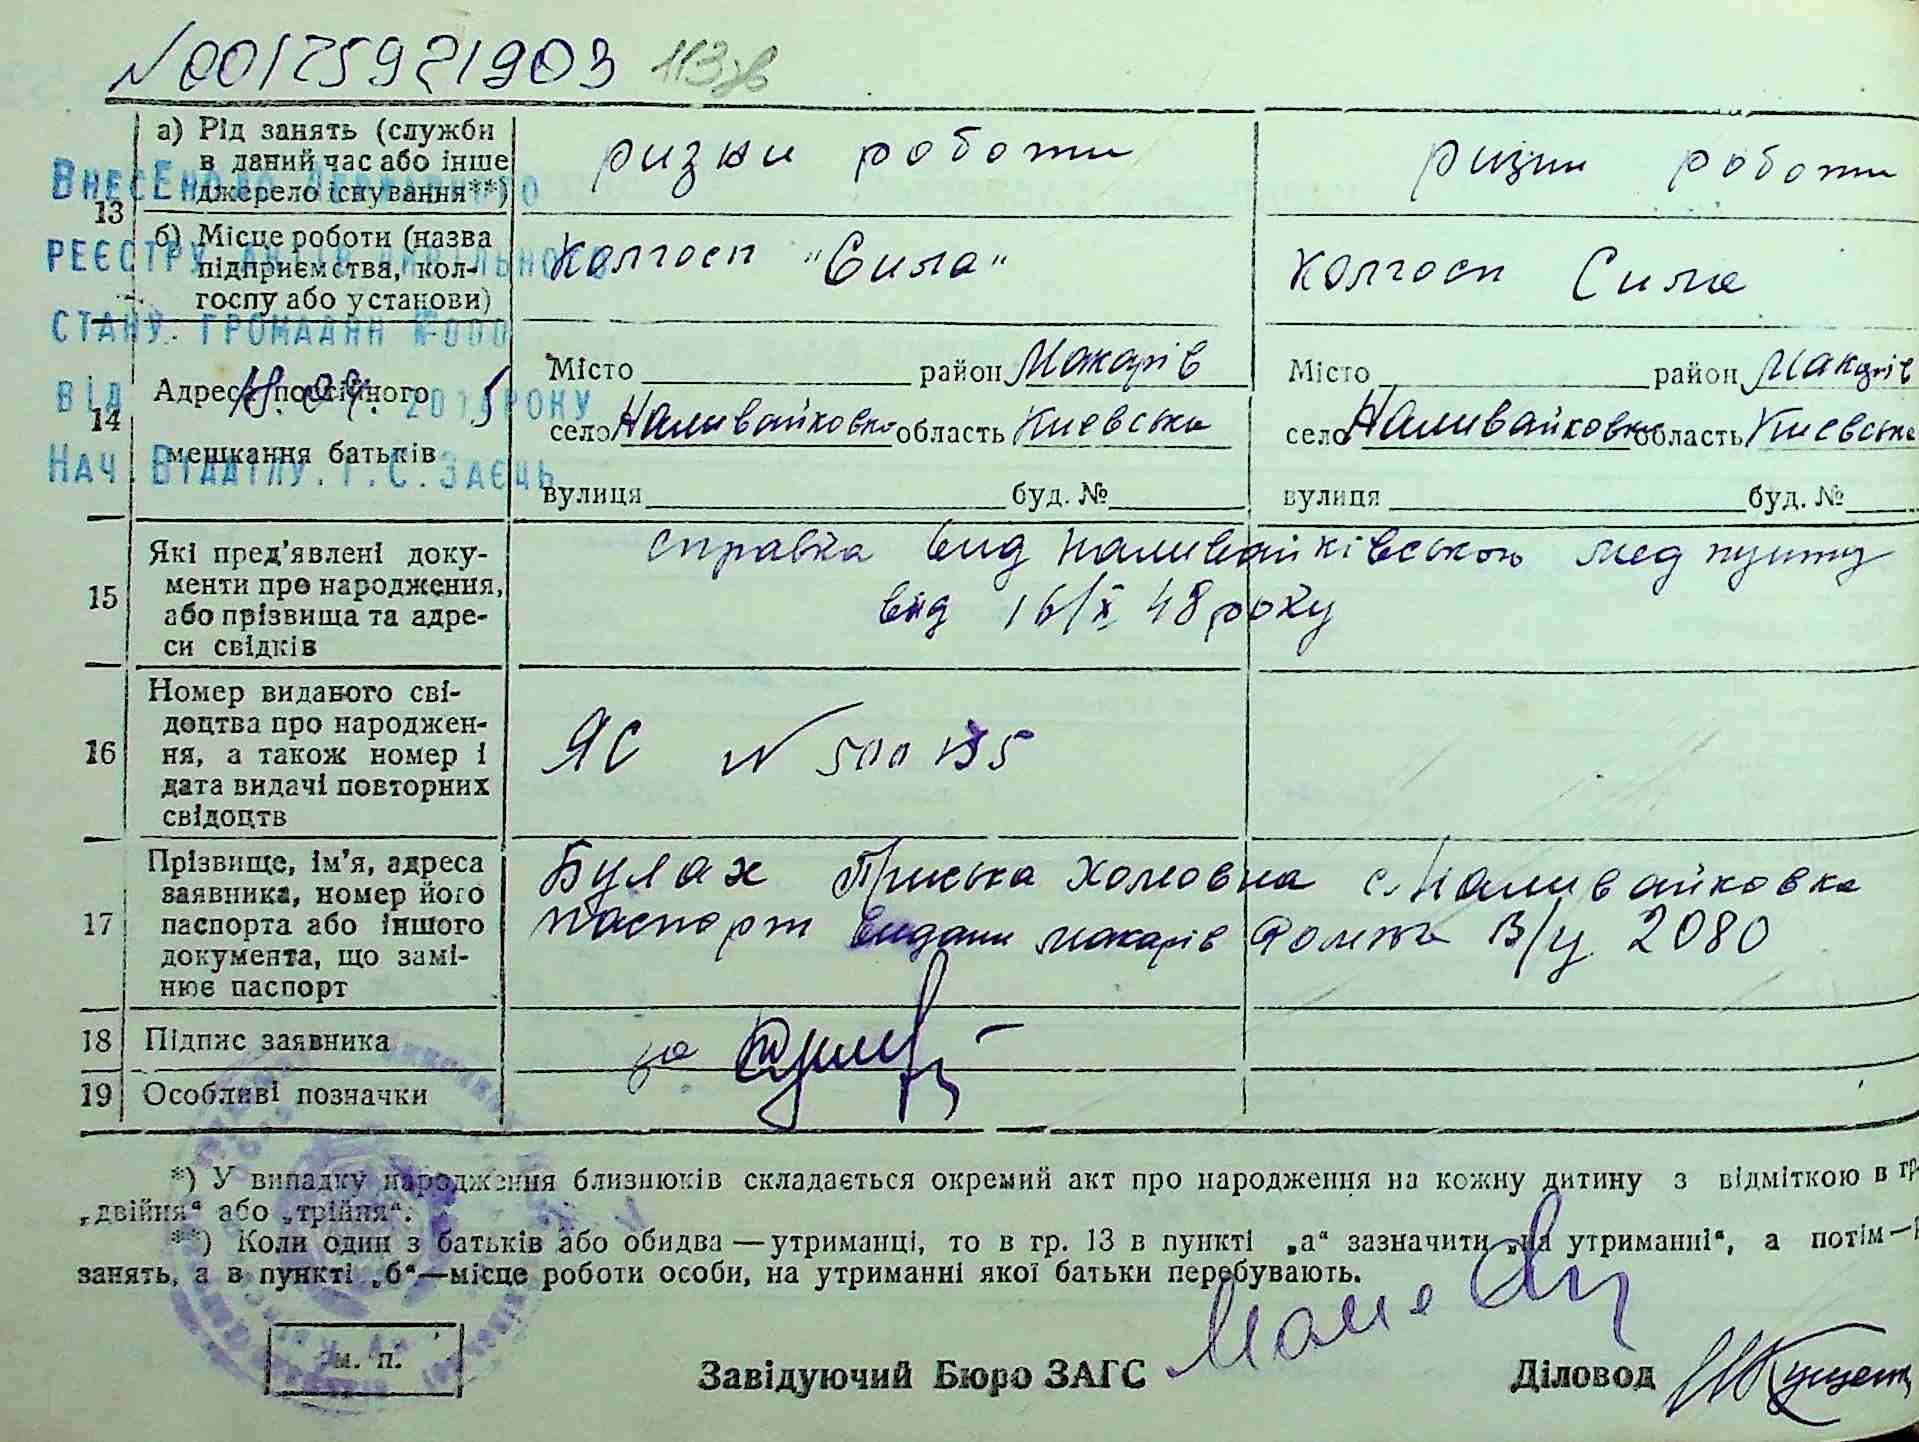 №00125921903 113зв
13
а) Рід занять (служби в даний час або інше джерело існування**)
ризни роботи
ризни роботи
б) Місце роботи (назва підприємства, колгоспу або установи)
колгосп "Сила"
колгосп Сила
Внесено до Державного
реєстру актів цивільного
стану громадян №000
від 18.09. 2015 року
Нач. Відділу. Г.С. Заєць
14
Адреса постійного
мешкання батьків
Місто район Макарів
село Наливайковка область Киевська
вулиця буд. №
Місто район Макарів
село Наливайковка область Киевська
вулиця буд. №
15
Які пред'явлені доку-
менти про народження,
або прізвища та адре-
си свідків
справка вид Наливайківського мед пункту
вид 16/X 48 року
16
Номер виданого сві-
доцтва про народжен-
ня, а також номер і
дата видачі повторних
свідоцтв
ЯС № 500135
17
Прізвище, ім'я, адреса
заявника, номер його
паспорта або іншого
документа, що замі-
нює паспорт
Булах Приська Хомовна с. Наливайковка
паспорт видани Макарів В/у 2080
18
Підпис заявника
за
19
Особливі позначки
*) У випадку народження близнюків складається окремий акт про народження на кожну дитину з відміткою в гр.
„двійня“ або „трійня“.
**) Коли один з батьків або обидва — утриманці, то в гр. 13 в пункті „а“ зазначити „на утриманні“, а потім —
занять, а в пункті „б“—місце роботи особи, на утриманні якої батьки перебувають.
м. п.
Завідуючий Бюро ЗАГС
Діловод